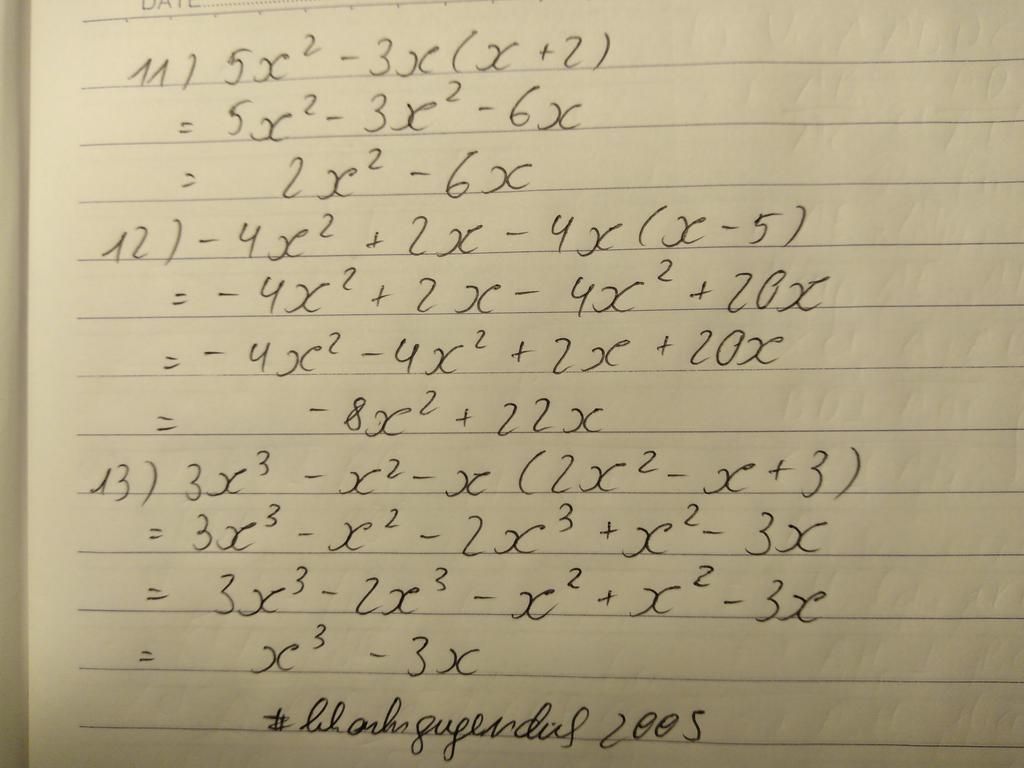 DATE
11) 5x² - 3x(x + 2)
= 5x² - 3x² - 6x
= 2x² - 6x
12) - 4x² + 2x - 4x(x - 5)
= - 4x² + 2x - 4x² + 20x
= - 4x² - 4x² + 2x + 20x
= - 8x² + 22x
13) 3x³ - x² - x (2x² - x + 3)
= 3x³ - x² - 2x³ + x² - 3x
= 3x³ - 2x³ - x² + x² - 3x
= x³ - 3x
2005